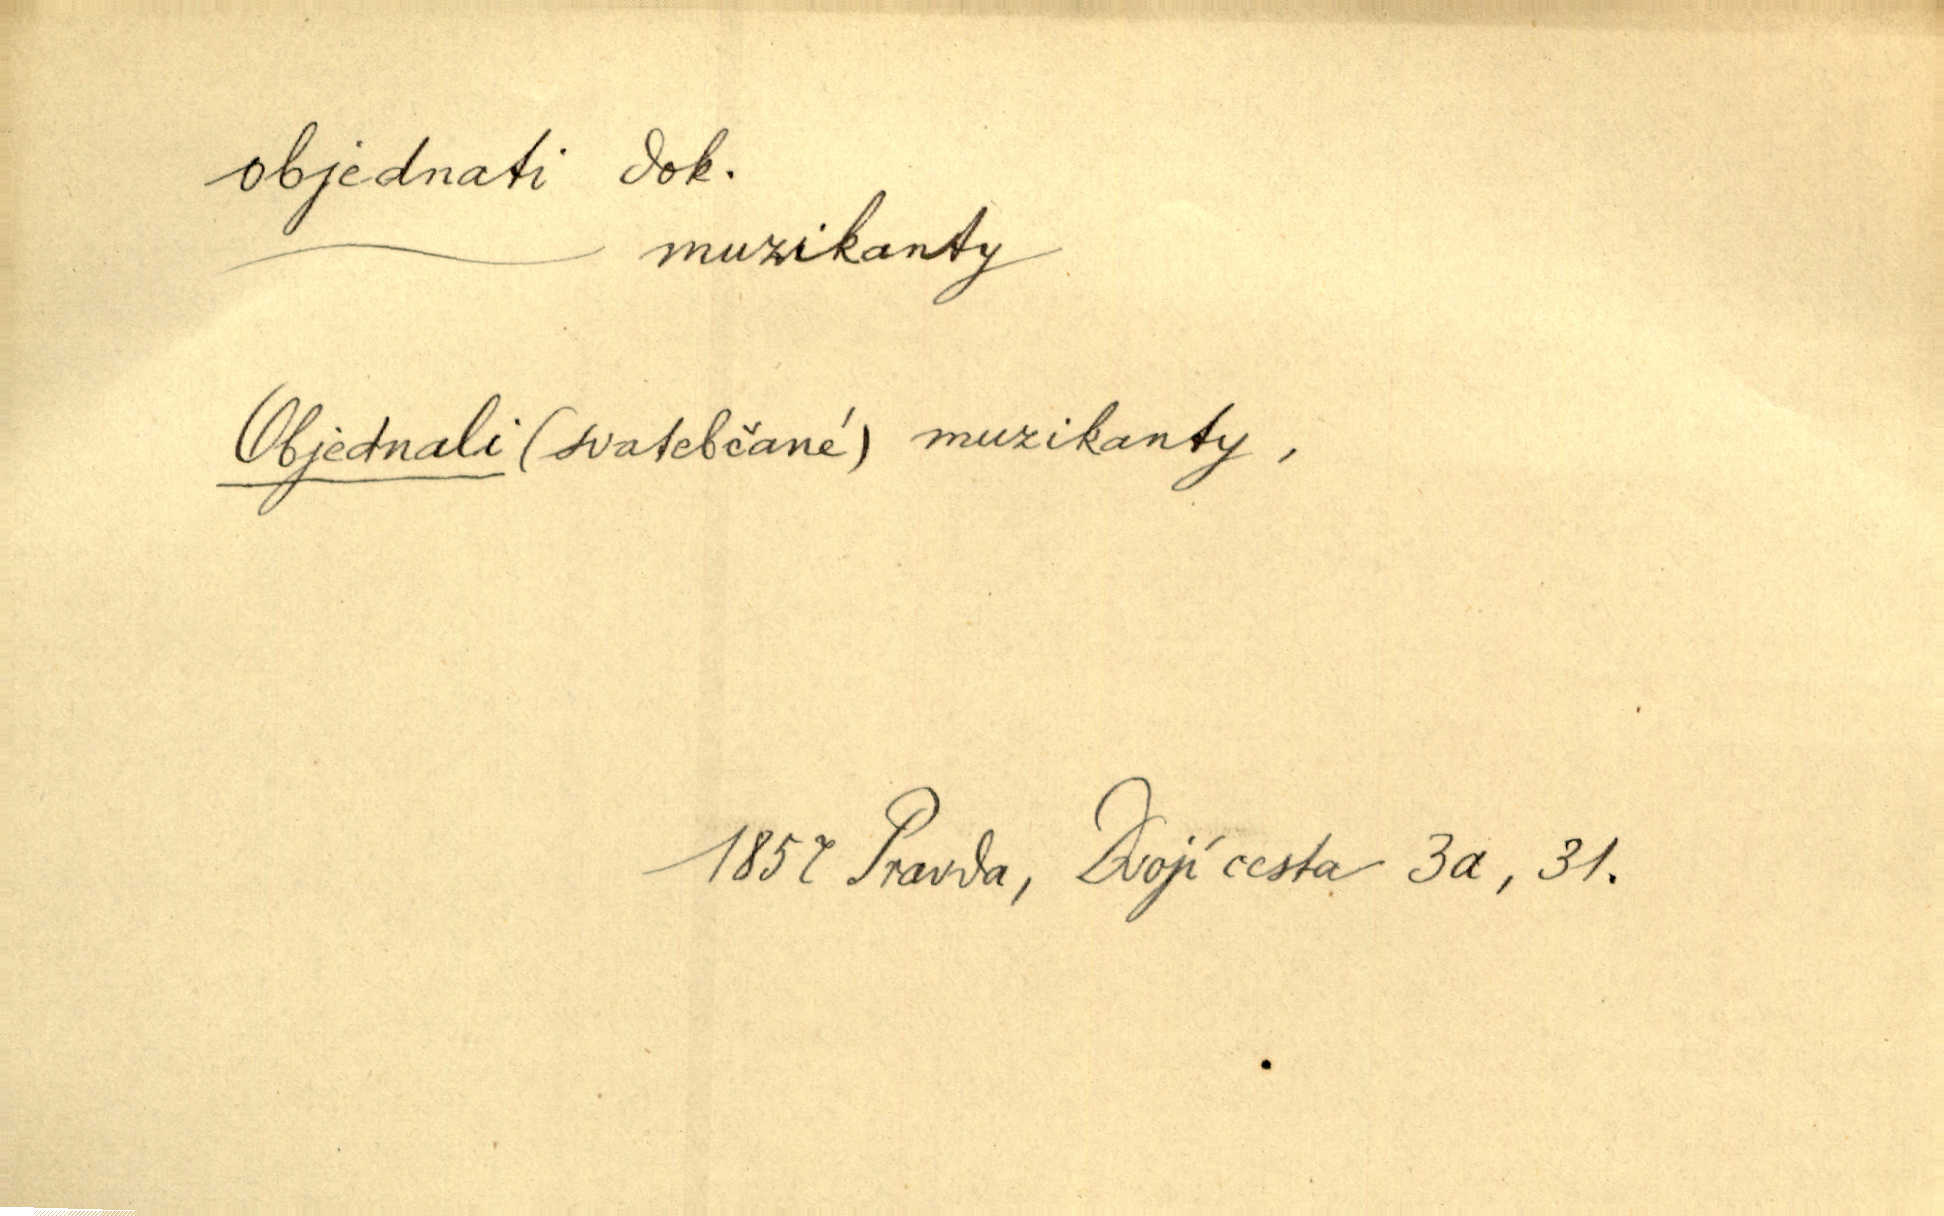 objednati dok.
muzikanty
Objednali (svatebčané) muzikanty,
1857 Pravda, Dvojí cesta 3a, 31.